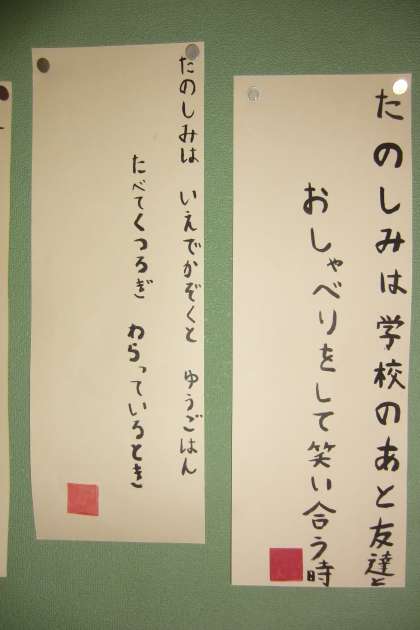 たのしみは学校のあと友達と
おしゃべりをして笑い合う時
たのしみは いえでかぞくと ゆうごはん
たべてくつろぎ わらっているとき